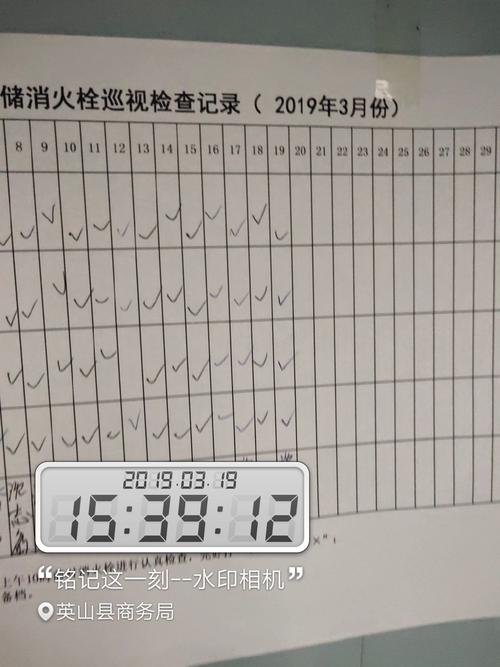 储消火栓巡视检查记录（ 2019年3月份）
8 9 10 11 12 13 14 15 16 17 18 19 20 21 22 23 24 25 26 27 28 29
2019.03.19
15:39:12
消火栓进行认真检查，
备档。
“铭记这一刻--水印相机”
英山县商务局